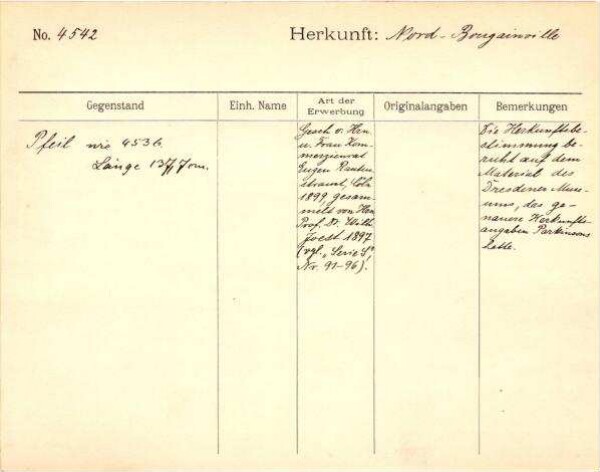 No. 4542
Herkunft: Nord-Bougainville
Gegenstand
Einh. Name
Art der Erwerbung
Originalangaben
Bemerkungen
Pfeil wie 4536.
Länge 137,7cm.
Gesch v. Hrn
u. Frau Kom-
merzienrat
Eugen Rauten-
strauch, Cöln
1899, gesam-
melt von Hrn
Prof. Dr. Wilh.
Joest 1897
(vgl. „Serie S",
Nr. 91-96).
Die Herkunftsbe-
stimmung be-
ruht auf dem
Material des
Dresdener Muse-
ums, das ge-
nauere Herkunfts-
angaben Parkinsons
hatte.